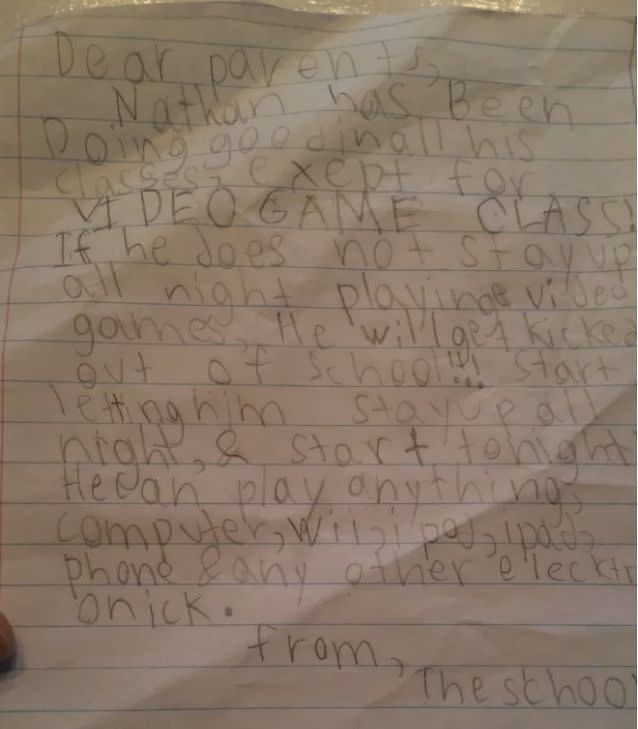 Dear parents,
Nathan has Been
Doing good in all his
classes, exept for
VIDEO GAME CLASS!
If he does not stay up
all night playinge video
games, He will get kicked
out of school!!! start
letting him stay up all
night, & start tonight
He can play anything,
computer, Wii, ipod, ipad,
phone & any other eleckt
onick.
from,
The schoo